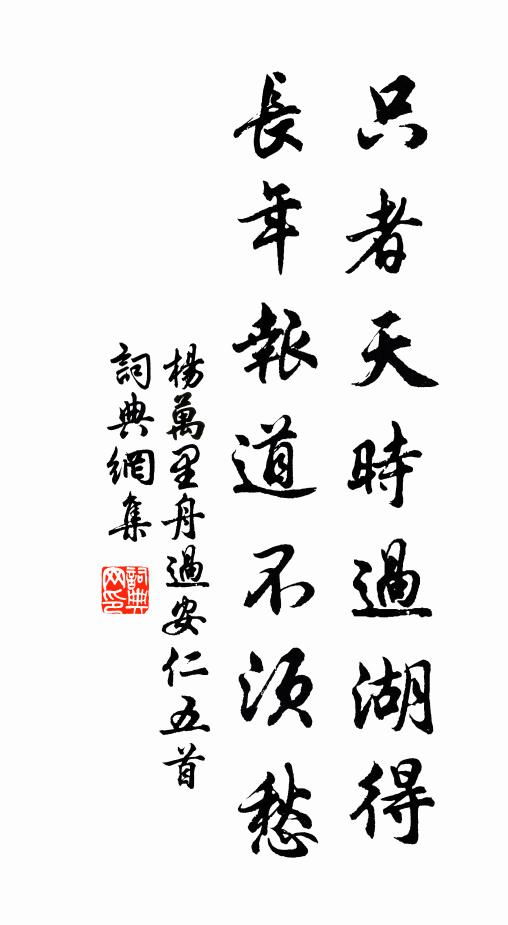 只者天時過湖得
長年報道不須愁
楊萬里舟過安仁五首
詞典網集
詞典網印